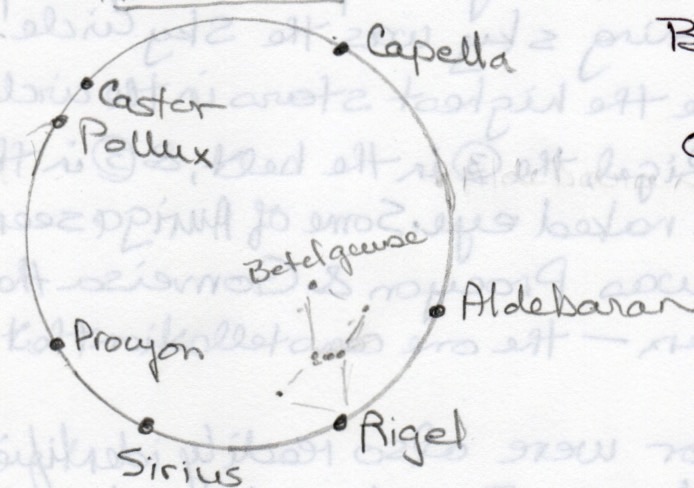 Capella
Castor
Pollux
Betelgeuse
Aldebaran
Procyon
Rigel
Sirius